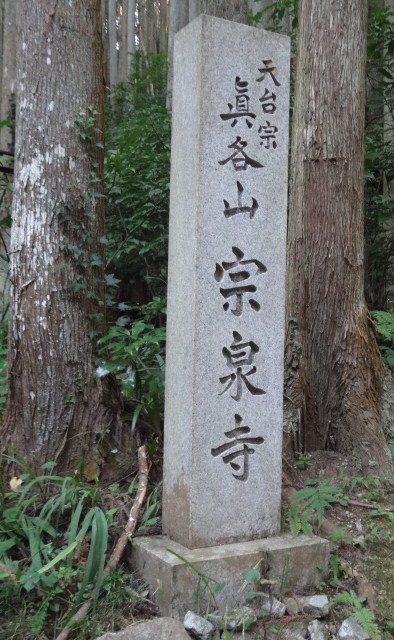 天台宗
眞各山 宗泉寺